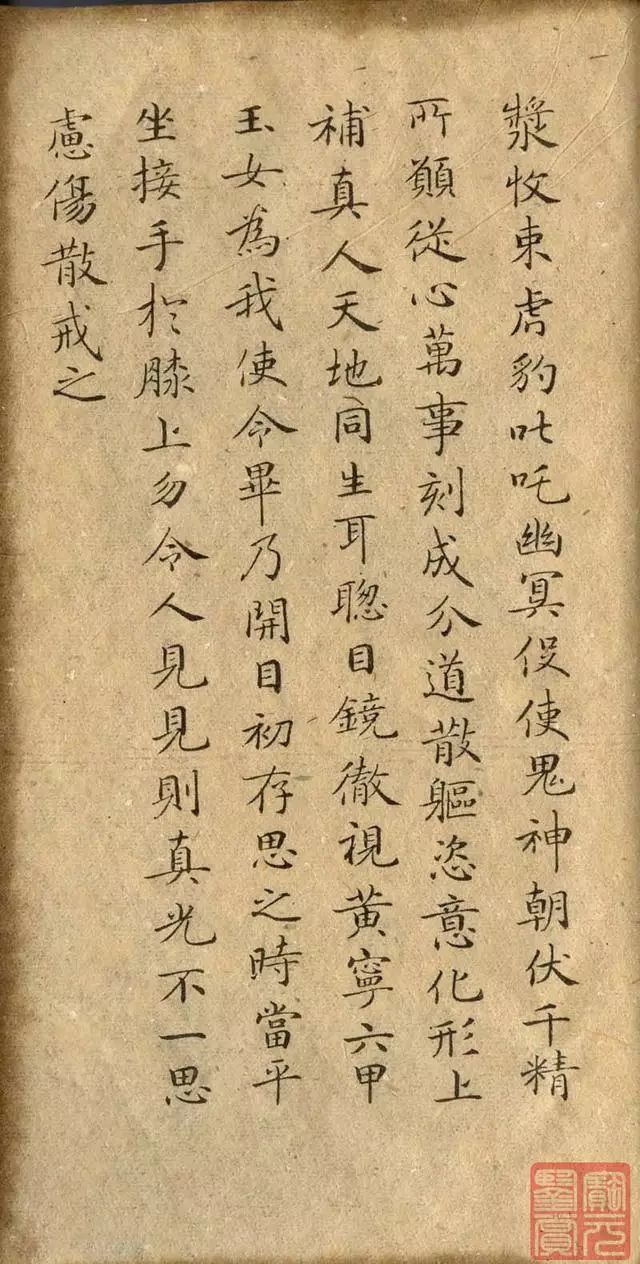 漿收束虎豹叱吒幽冥促使鬼神朝伏千精
所願從心萬事刻成分道散軀恣意化形上
補真人天地同生耳聰目鏡徹視黃寧六甲
玉女為我使令畢乃開目初存思之時當平
坐接手於膝上勿令人見見則真光不一思
慮傷散戒之